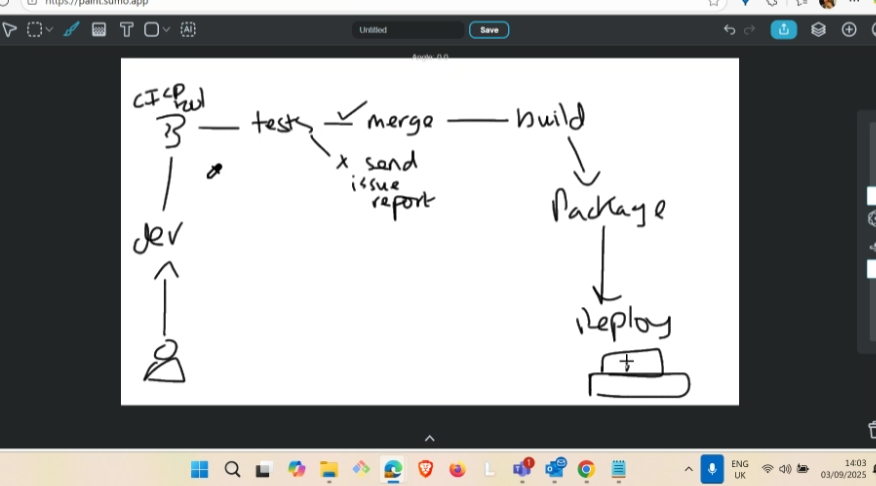 https://paint.sumo.app
T
AI
Untitled
Save
Angle: 0.0
CICD
tests
merge
build
x send
issue
report
dev
Package
Deploy
ENG
UK
14:03
03/09/2025